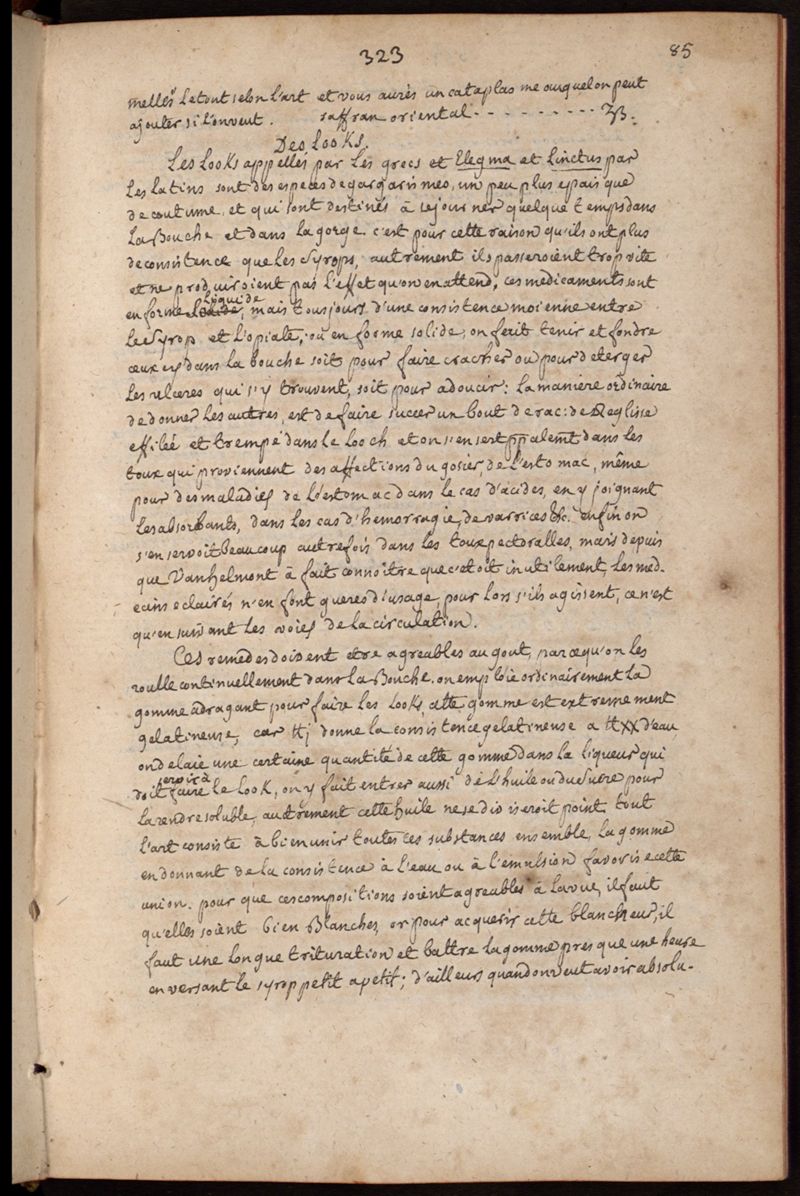 323
85
melles. Le tout selon l'art et vous aurés un cataplasme auquel on peut
ajouter si l'on veut. saffran oriental - - - - - - - - - ʒβ.
Des Looks.
Les Looks appellés par les grecs et Elegma et Linctus par
Les Latins sont des especes de gargarismes, un peu plus epais que
de coutume, et qui sont destinés à sejourner quelque temps dans
La Bouche et dans la gorge. c'est pour cette raison qu'ils ont plus
de consistence que les syrops, autrement ils passeroient trop vite
et ne produiroient pas l'effet qu'on en attend, ces medicaments sont
en forme Liquide, mais tousjours d'une consistence moienne entre
Le syrop et l'opiate, ou en forme solide, on fait tenir et fondre
ceux cy dans la bouche soit pour faire cracher ou pour deterger
Les ulceres qui s'y trouvent, soit pour adoucir: la maniere ordinaire
de donner les autres, est de faire succer un bout de rac: de Reglisse
effilée et trempé dans le Looch et on s'en sert ppalemt dans les
toux qui proviennent des affections du gosier, de l'estomac, même
pour des maladies de l'estomac dans le cas d'acides, en y joignant
Les absorbants, dans les cas d'hemorragie, de varrices &c. enfin on
s'en servoit beaucoup autrefois dans les toux pectoralles, mais depuis
que Vanhelmont à fait connoitre que c'etoit inutilement, les med-
ecins eclairés n'en font gueres d'usage, pour lors s'ils agissent, ce n'est
qu'en suivant les voies de la circulation.
Ces remedes doivent etre agreables au gout, parcequ'on les
roulle continuellement dans la Bouche, on emploie ordinairement la
gomme adragant pour faire les Looks, cette gomme est extremement
gelatineuse, car ℔j donne la consistence gelatineuse a ℔xx d'eau
on delaie une certaine quantité de cette gomme dans la liqueur qui
doit servir à faire le Look, on y fait entrer aussi de l'huile ou du sucre pour
la rendre soluble, autrement cette huile ne se diviseroit point. tout
l'art consiste à bien unir toutes ces substances ensemble, la gomme
en donnant de la consistence à l'eau ou à l'emulsion favorise cette
union. pour que ces compositions soient agreables à la vue, il faut
qu'elles soient bien Blanches, or pour acquerir cette blancheur, il
faut une longue trituration et battre la gomme presque une heure
en versant le syrop petit a petit; d'ailleurs quand on veut avoir absolu-